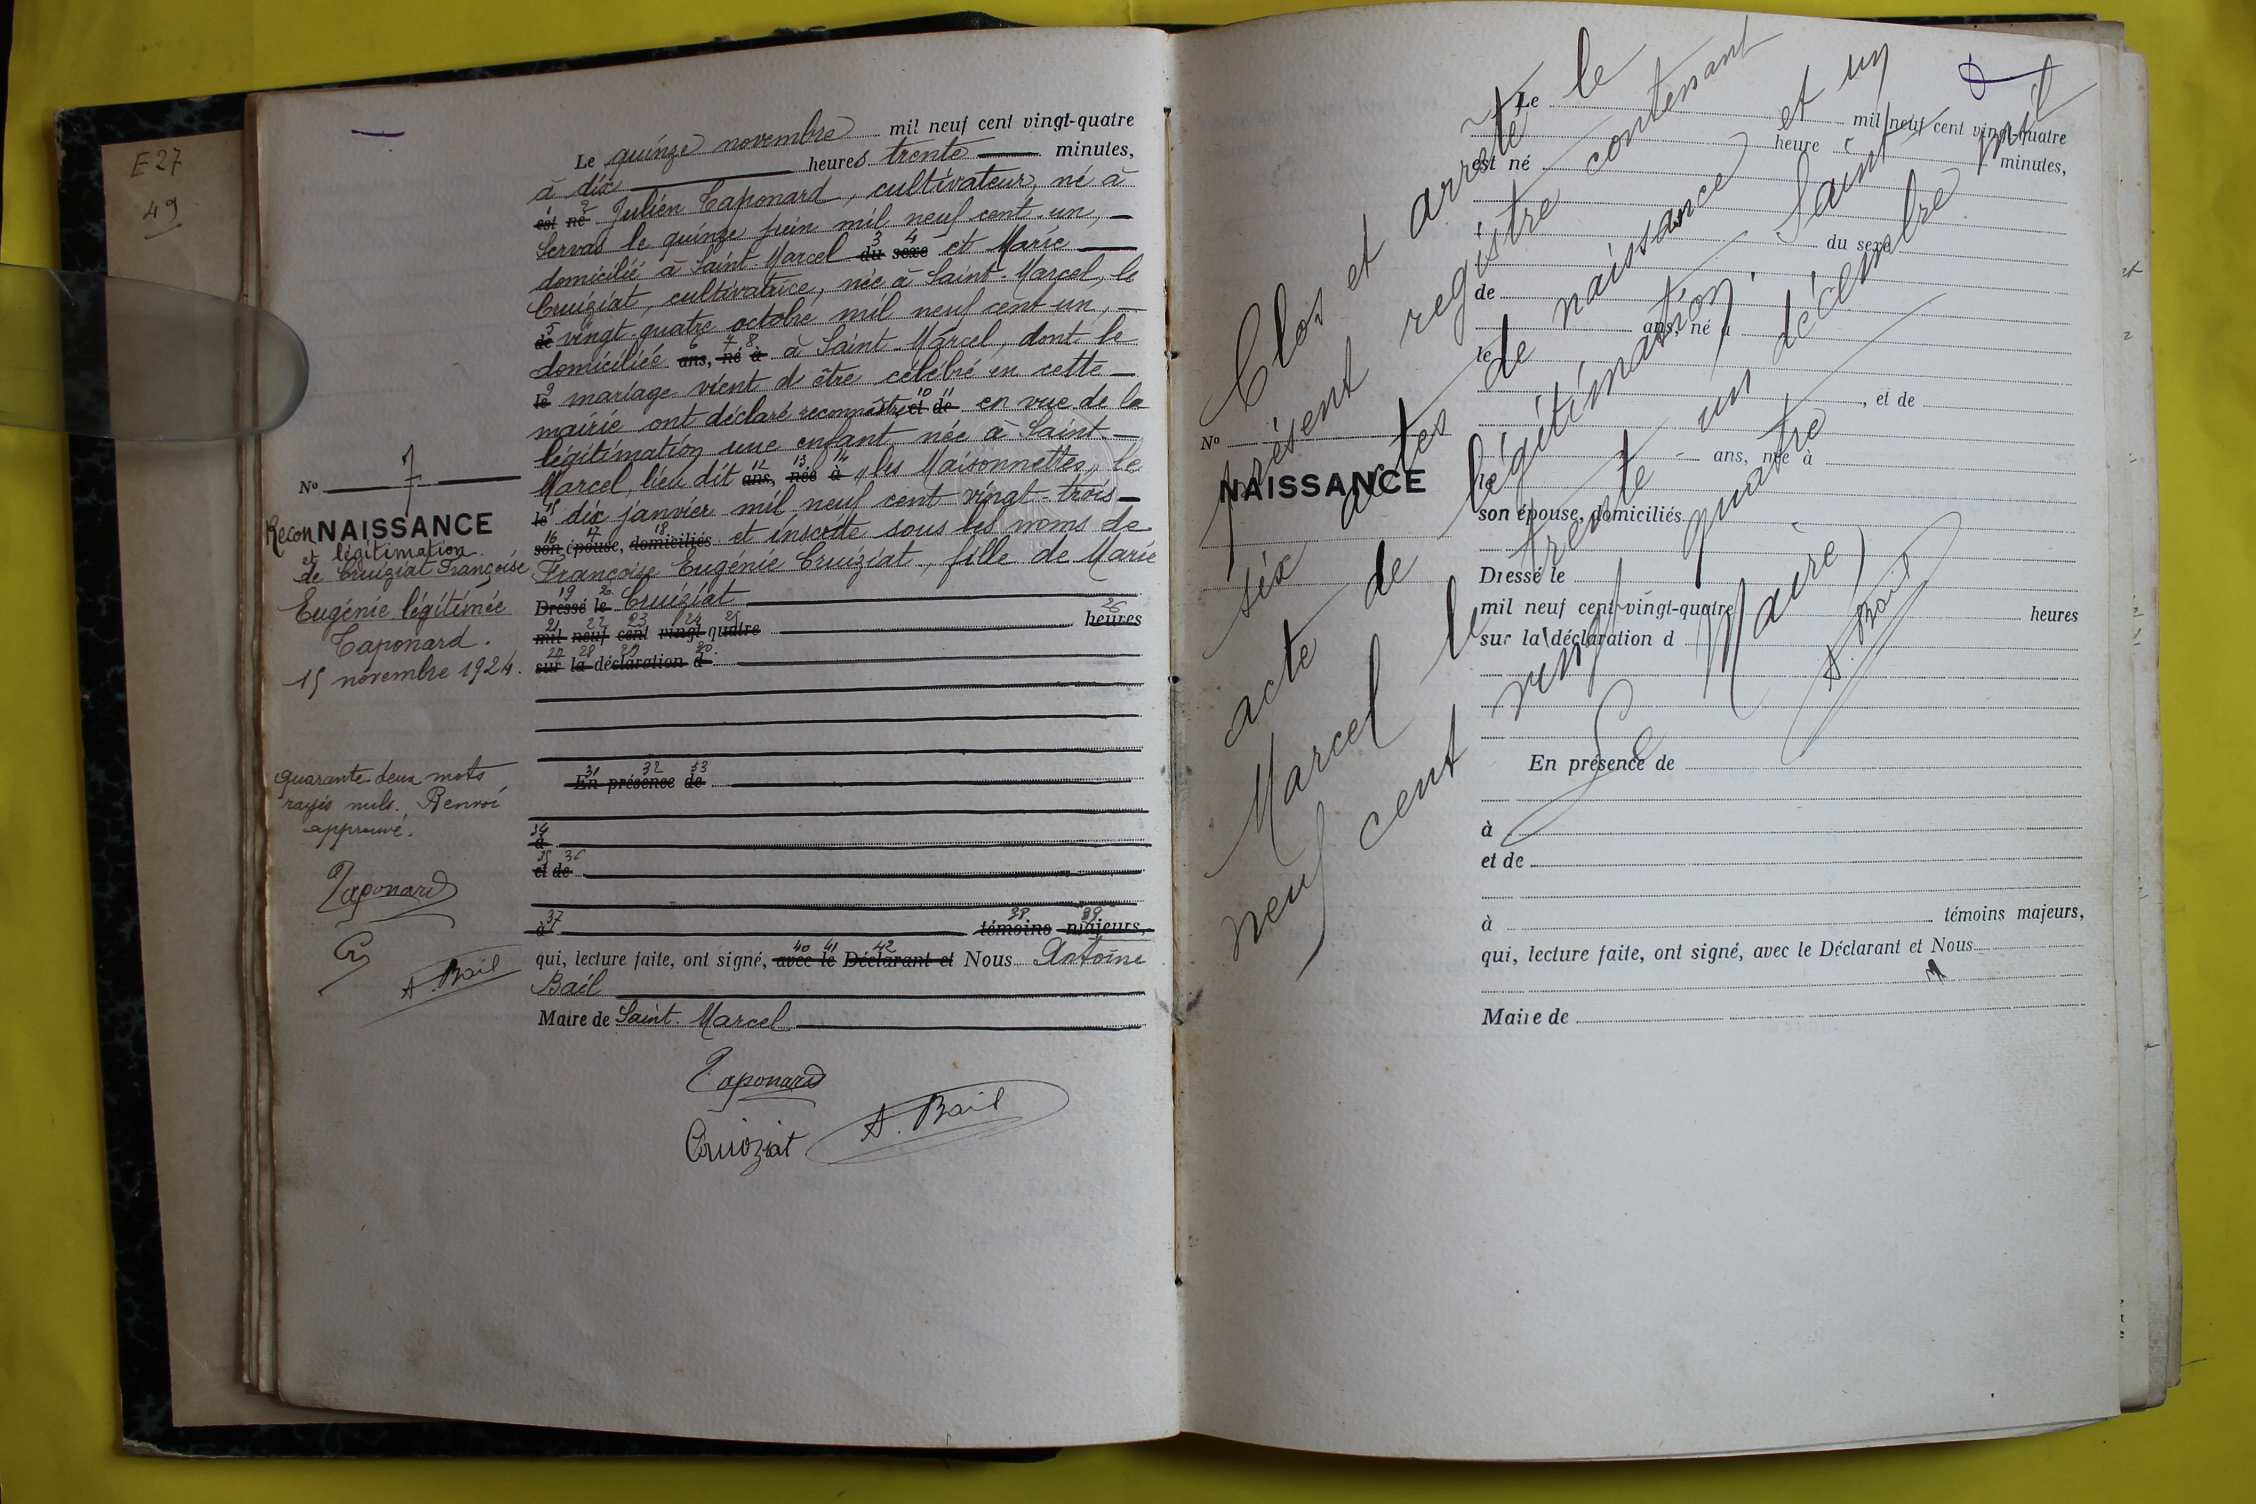 E 27
49
Le quinze novembre mil neuf cent vingt-quatre
à dix heures trente minutes,
est né 1 2 Julien Taponard, cultivateur, né à
Servas le quinze juin mil neuf cent un,
domicilié à Saint-Marcel du 3 sexe 4 et Marie
Cruiziat, cultivatrice, née à Saint-Marcel, le
de 5 vingt-quatre octobre mil neuf cent un,
domiciliée ans, 6 né 7 à 8 à Saint-Marcel, dont le
le 9 mariage vient d'être célébré en cette
mairie ont déclaré reconnaître et 10 de 11 en vue de la
légitimation une enfant née à Saint-
Marcel, lieu dit ans, 12 née 13 à 14 "les Maisonnettes", le
le 15 dix janvier mil neuf cent vingt-trois
son 16 épouse, 17 domiciliés 18 et inscrite sous les noms de
Françoise Eugénie Cruiziat, fille de Marie
Dressé 19 le 20 Cruiziat
mil 21 neuf 22 cent 23 vingt 24 quatre 25 heures 26
sur 27 la 28 déclaration 29 d 30
En 31 présence 32 de 33
à 34
et 35 de 36
à 37 témoins 38 majeurs, 39
qui, lecture faite, ont signé, avec 40 le 41 Déclarant et 42 Nous Antoine
Bail
Maire de Saint-Marcel
Taponard
Cruiziat
A. Bail
No 7
ReconNAISSANCE
et légitimation
de Cruiziat Françoise
Eugénie légitimée
Taponard.
15 novembre 1924.
quarante deux mots
rayés nuls. Renvoi
approuvé.
Taponard
Cr
A. Bail
Clos et arrêté le
présent registre contenant
six actes de naissance et un
acte de légitimation, Saint-
Marcel le trente un décembre mil
neuf cent vingt quatre
Le Maire,
A. Bail
No
NAISSANCE
Le mil neuf cent vingt-quatre
à heure minutes,
est né
du sexe
de
ans, né à
le
, et de
ans, née à
le
son épouse, domiciliés
Dressé le
mil neuf cent vingt-quatre heures
sur la déclaration d
En présence de
à
et de
à témoins majeurs,
qui, lecture faite, ont signé, avec le Déclarant et Nous
Maire de